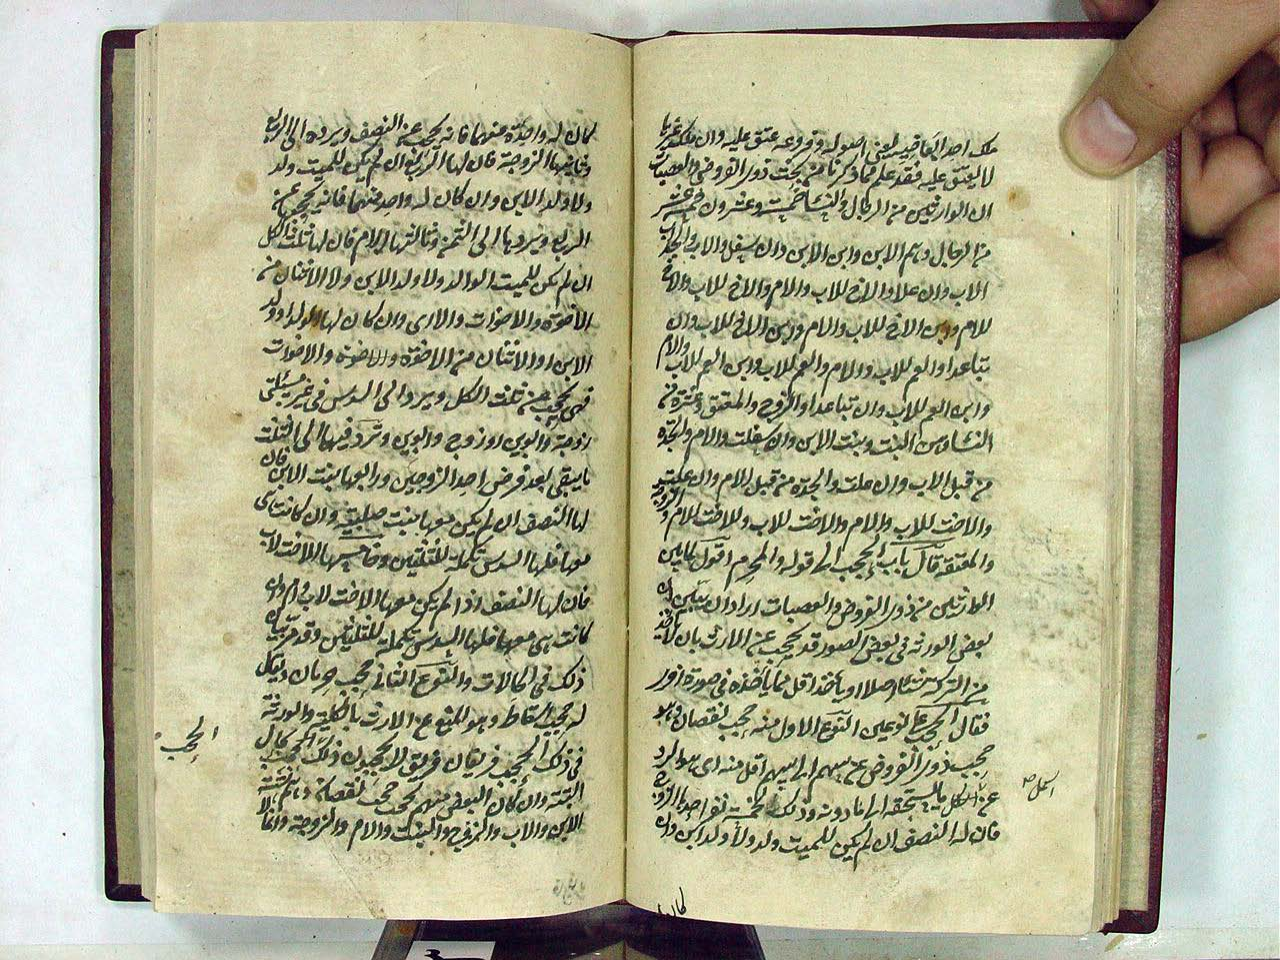 ملك احد العاقدين يعنى اصوله وفروعه عتق عليه وان ملك غيرها
لا يعتق عليه فقد علم مما ذكرنا من بحث ذوى الفروض والعصبات
ان الوارثين من الرجال والنساء خمسة وعشرون خمسة عشر
من الرجال وهم الابن وابن الابن وان سفل والاب والجد اب
الاب وان علا والاخ للاب والام والاخ للاب والاخ
للام وابن الاخ للاب والام وابن الاخ للاب وان
تباعدا والعم للاب والام والعم للاب وابن العم للاب والام
وابن العم للاب وان تباعدا والزوج والمعتق وعشرة من
النساء وهن البنت وبنت الابن وان سفلت والام والجدة
من قبل الاب وان علت والجدة من قبل الام وان علت
والاخت للاب والام والاخت للاب والاخت للام والزوجة
والمعتقة قال باب الحجب الى قوله والمحرم اقول لما بين
الوارثين من ذوى الفروض والعصبات اراد ان يبين ان
بعض الورثة فى بعض الصور قد يحجب عن الارث بان لا ياخذ
من التركة شيئا اصلا او ياخذ اقل مما ياخذه فى صورة اخرى
فقال الحجب على نوعين النوع الاول منه حجب نقصان وهو
حجب ذوى الفروض عن سهم الى سهم اقل منه اى هو الرد
عن اكمل ما يستحقه الى ما دونه وذلك لخمسة نفر احدها الزوج
فان له النصف ان لم يكن للميت ولد ولا ولد ابن وان
كان له
كان له واحدة منهما فانه يحجب عن النصف ويرده الى الربع
وثانيها الزوجة فان لها الربع ان لم يكن للميت ولد
ولا ولد الابن وان كان له واحد منهما فانه يحجبها عن
الربع ويردها الى الثمن وثالثها الام فان لها ثلث الكل
ان لم يكن للميت الولد ولا ولد الابن ولا الاثنان من
الاخوة والاخوات وان كان لها الولد او ولد
الابن او الاثنان من الاخوة والاخوات
فهى تحجب من ثلث الكل ويرد الى السدس فى غير مسئلتى
زوجة وابوين او زوج وابوين وترد فيها الى الثلث
ما يبقى بعد فرض احد الزوجين ورابعها بنت الابن فان
لها النصف ان لم يكن معها بنت صلبية وان كانت هى
معها فلها السدس تكملة للثلثين وخامسها الاخت لاب
فان لها النصف اذا لم يكن معها الاخت لاب وام وان
كانت هى معها فلها السدس تكملة للثلثين وقد مر بيان
ذلك فى الحالات والنوع الثانى حجب حرمان ويقال
له حجب اسقاط وهو المنع عن الارث بالكلية والورثة
فى ذلك الحجب فريقان فريق لا يحجبون ذلك الحجب بحال
البتة وان كان البعض منهم يحجب حجب نقصان وهم ستة
الابن والاب والزوج والبنت والام والزوجة
الحجب